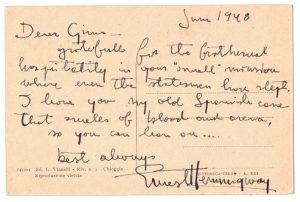 June 1948
Dear Gino —
gratefull for the brotherual
hospitality in your "small" mansion
where even the statesmen have slept,
I leave you my old Spanish cane
that smells of blood and arena,
so you can lean on....
best always
Ernest Hemingway
Ed. L. Vianelli - Riv. n. 3 - Chioggia
Riproduzione vietata
- A. XXI